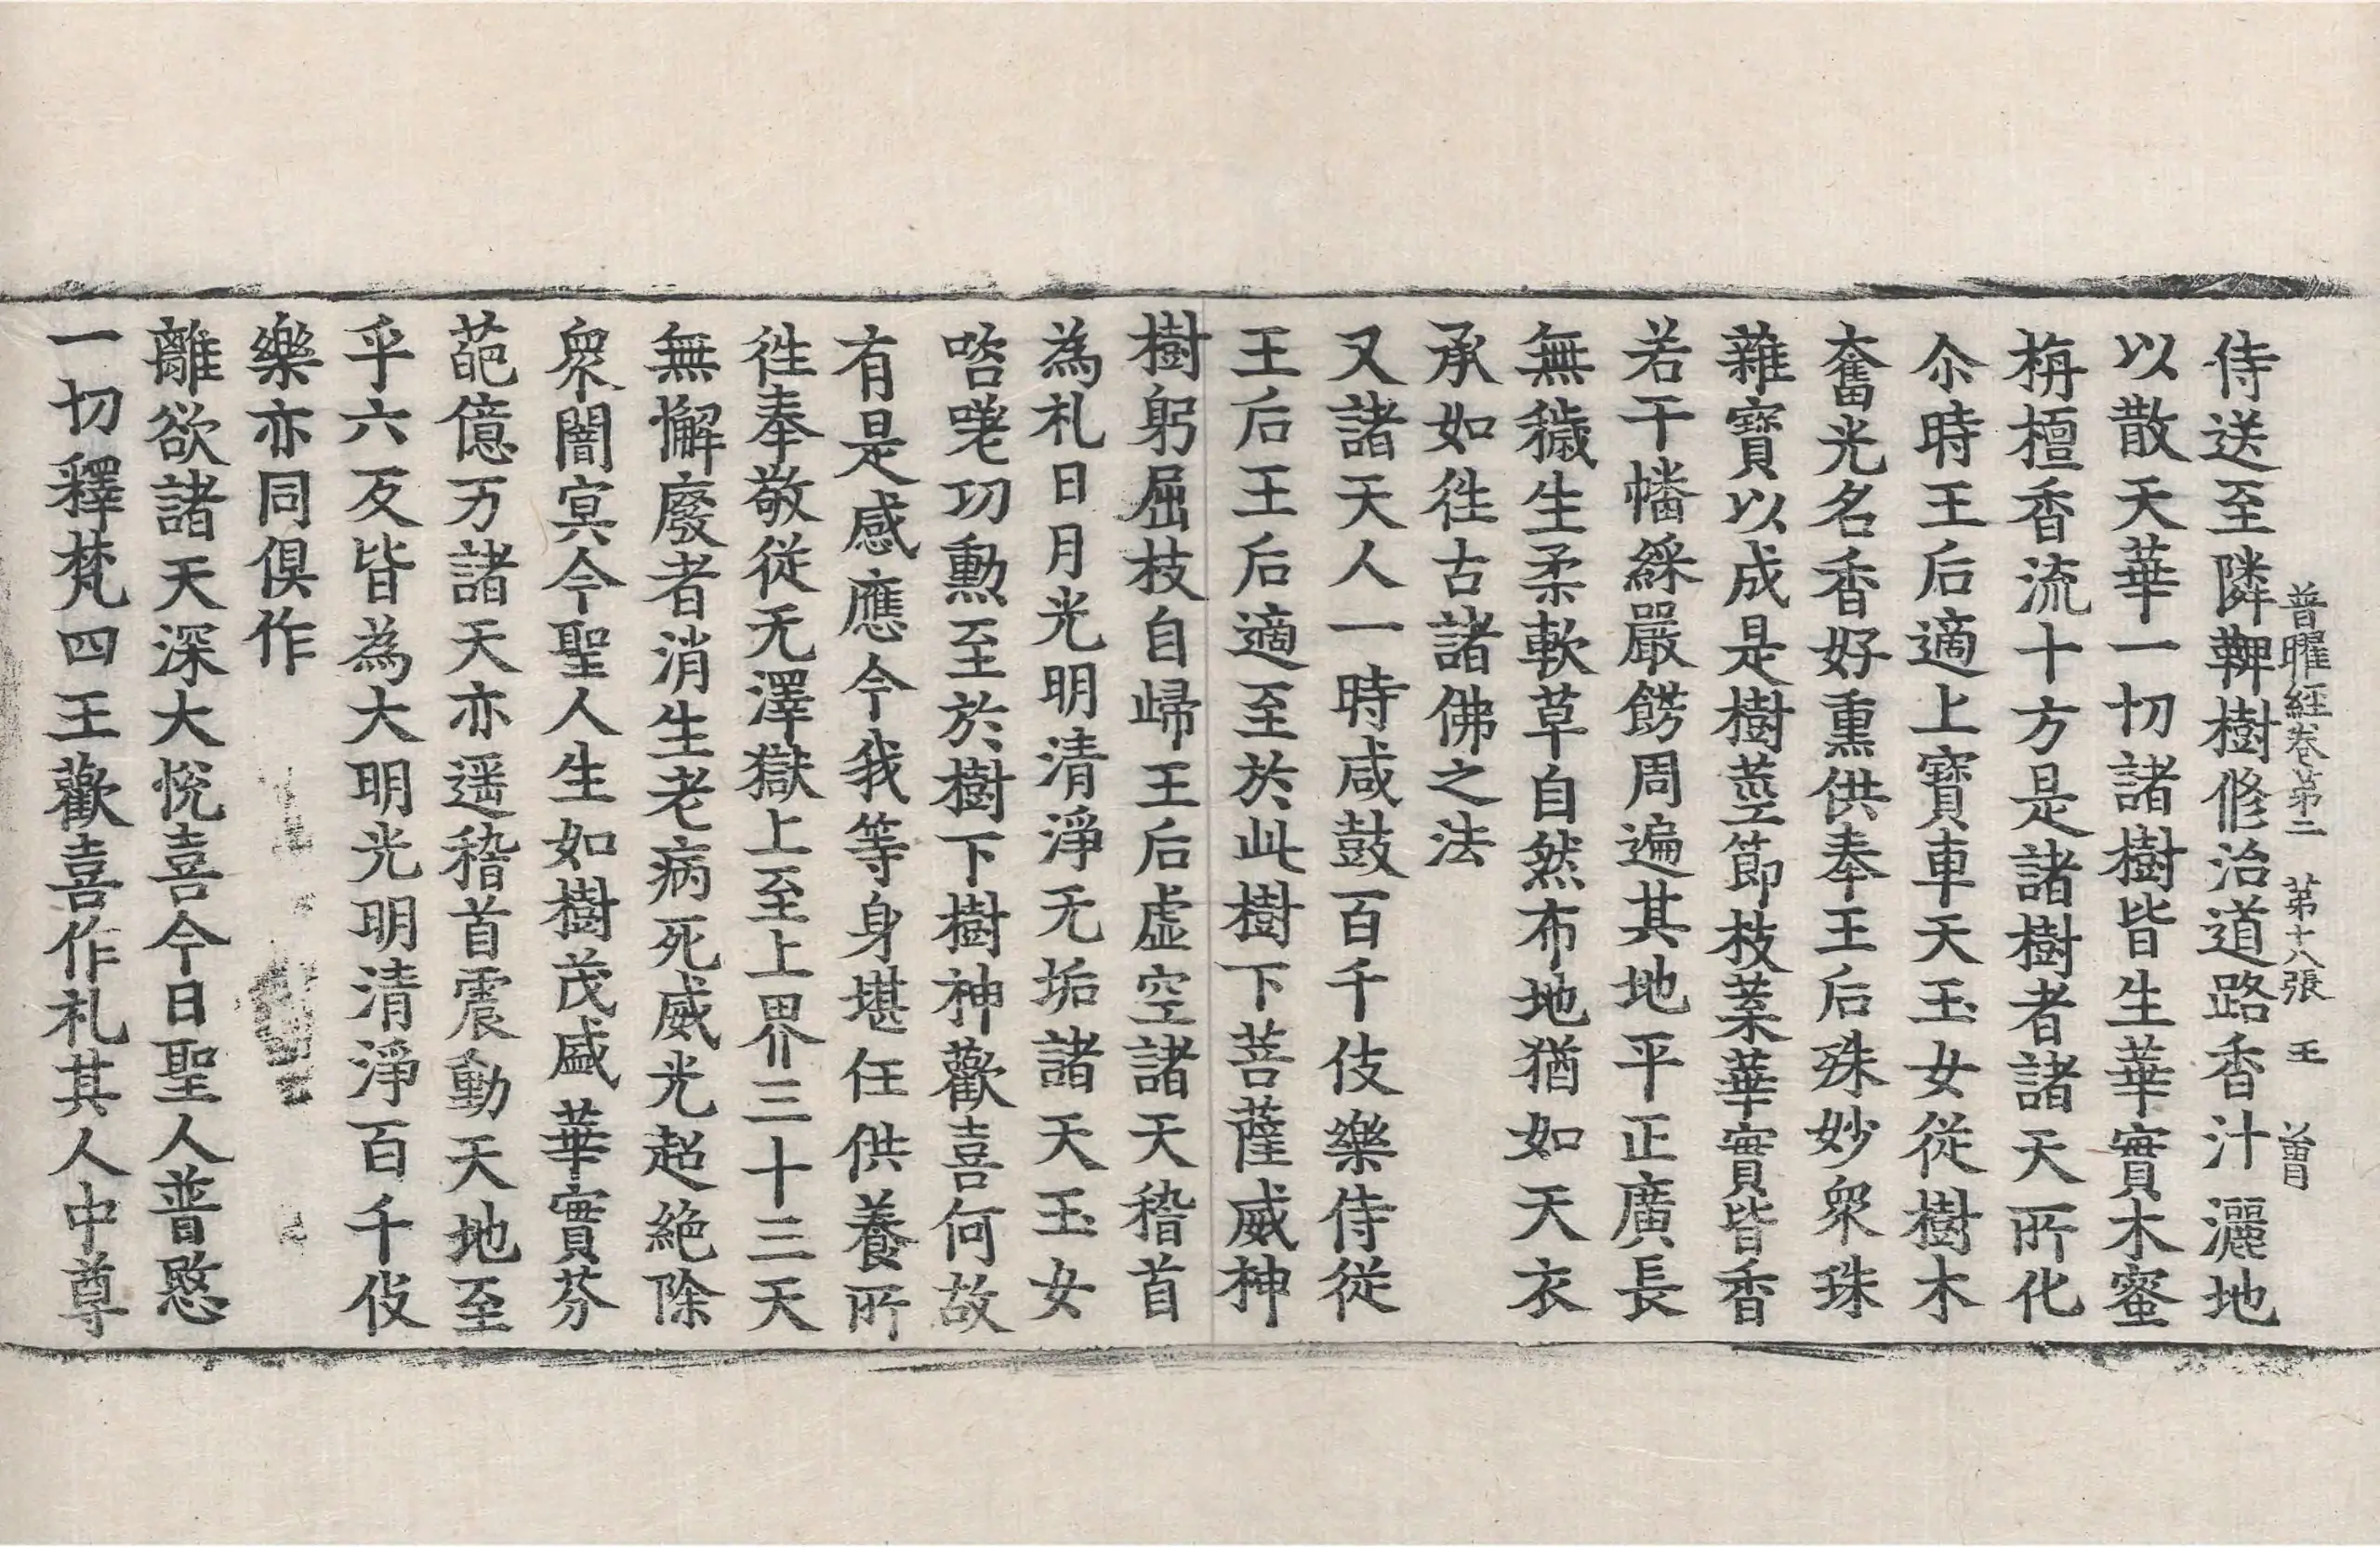 普曜經卷第二 第十八張 王 曽
侍送至隣鞞樹修治道路香汁灑地
以散天華一切諸樹皆生華實木蜜
栴檀香流十方是諸樹者諸天所化
尒時王后適上寶車天玉女從樹木
奮光名香好熏供奉王后殊妙衆珠
雜寶以成是樹莖節枝葉華實皆香
若干幡綵嚴餝周遍其地平正廣長
無穢生柔軟草自然布地猶如天衣
承如往古諸佛之法
又諸天人一時咸鼓百千伎樂侍從
王后王后適至於此樹下菩薩威神
樹躬屈枝自歸王后虛空諸天稽首
為礼日月光明清淨无垢諸天玉女
咨嗟功勲至於樹下樹神歡喜何故
有是感應今我等身堪任供養所
往奉敬從无澤獄上至上界三十三天
無懈廢者消生老病死威光超絕除
衆闇㝠今聖人生如樹茂盛華實芬
葩億万諸天亦遥稽首震動天地至
乎六反皆為大明光明清淨百千伎
樂亦同俱作
離欲諸天深大悅喜今日聖人普愍
一切釋梵四王歡喜作礼其人中尊